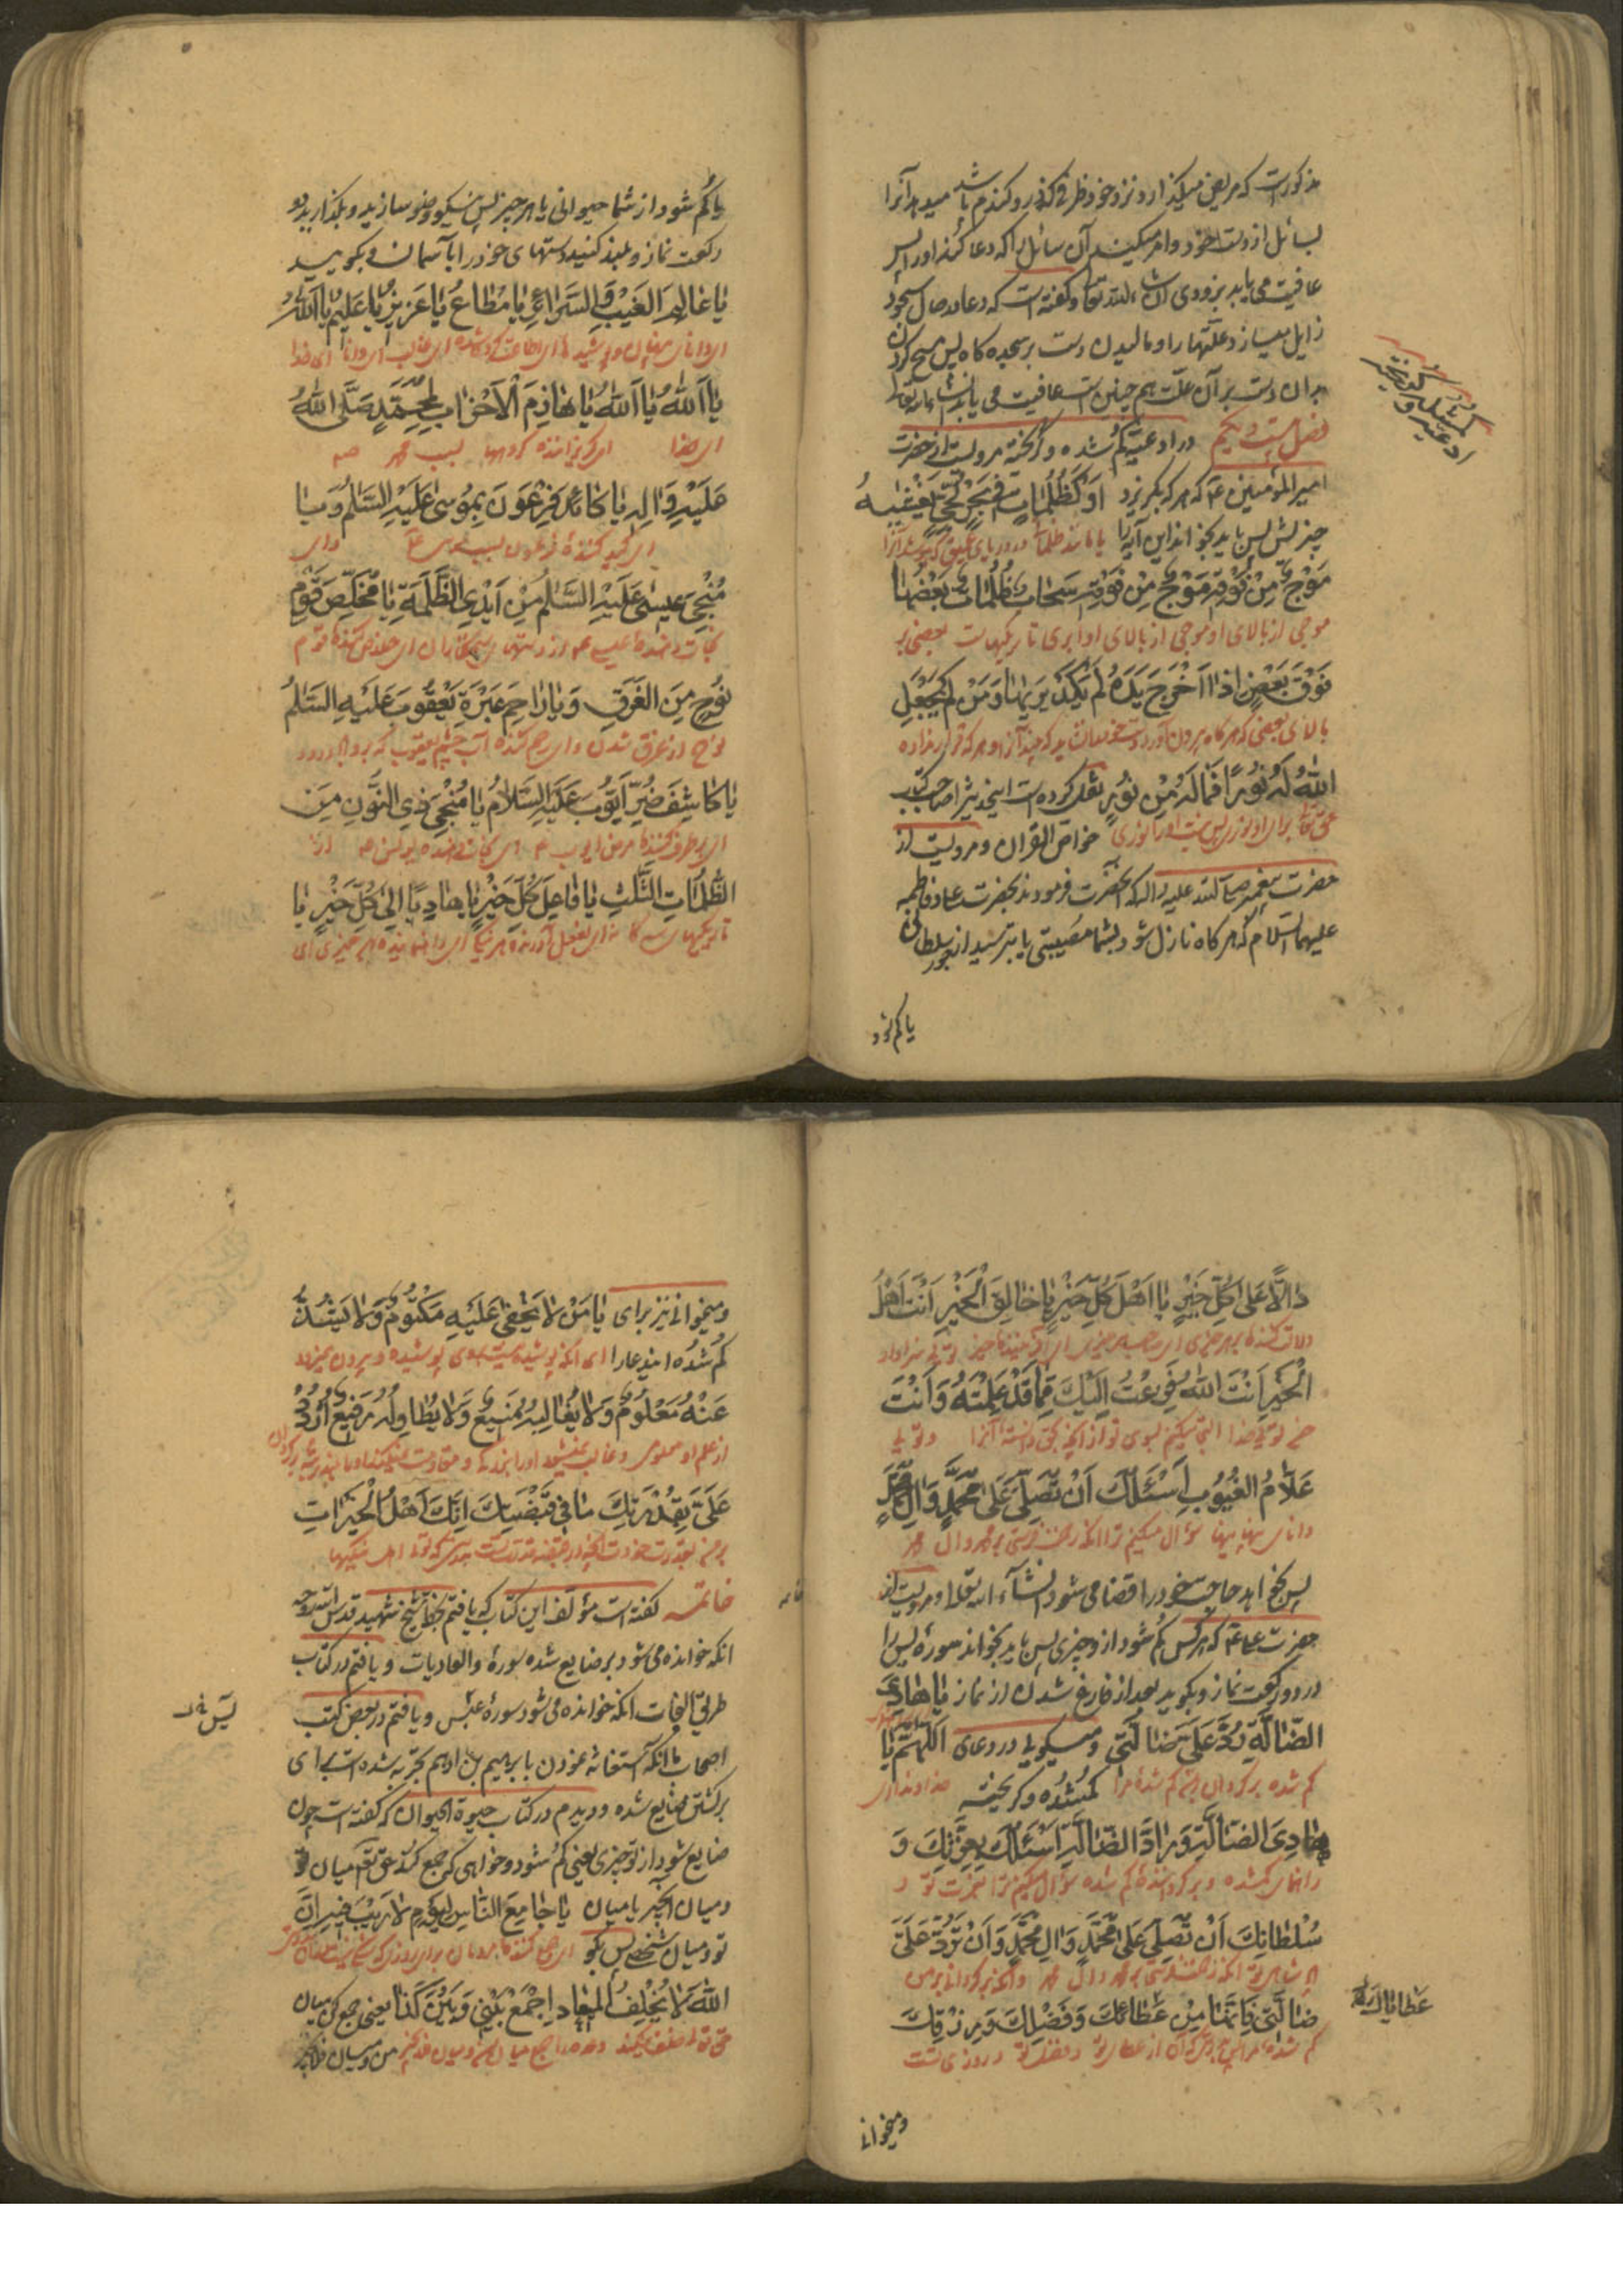 مذکورست که مریض میگذارد نزد خود ظرفی که درو گندم باشد میدهد آنرا
بسائل از دست خود و امر میکند آن سائل را که دعا کند او را پس
عافیت می یابد بزودی انشاء الله تعالی و گفته است که دعا در حال سجود
زایل میسازد علتها را و مالیدن دست بر سجده گاه پس مسح کردن
بدان دست بر آن علت هم چنین است عافیت می یابد انشاء الله تعالی
فصل بیست و یکم در ادعیه گم شده و گریخته مرویست از حضرت
ادعیه گمشده و گریخته
امیر المؤمنین ع م که هر که بگریزد أَوْ كَظُلُمَاتٍ فِي بَحْرٍ لُجِّيٍّ يَغْشَيهُ
چیزش پس باید بخواند این آیه را یا مانند ظلمات در دریای عمیق که بپوشد آنرا
مَوْجٌ مِنْ فَوْقِهِ مَوْجٌ مِنْ فَوْقِهِ سَحَابٌ ظُلُمَاتٌ بَعْضُهَا
موجی از بالای او موجی از بالای او ابری تاریکیهاست بعضی بر
فَوْقَ بَعْضٍ اِذَا اَخْرَجَ يَدَهُ لَمْ يَكَدْ يَرَيهَا وَمَنْ لَمْ يَجْعَلِ
بالای بعضی که هرگاه بیرون آورد دست خود را نشاید که بیند آنرا و هر که قرار نداده
اللهُ لَهُ نُورًا فَمَا لَهُ مِنْ نُورٍ نقل کرده است اینحدیث را صاحب کتاب
حق تعالی برای او نوری پس نیست او را نوری خواص القرآن و مرویست از
حضرت پیغمبر صلی الله علیه و اله که آنحضرت فرمودند بحضرت علی و فاطمه
علیهما السلام که هرگاه نازل شود بشما مصیبتی یا بترسید از جور سلطانی
یا گم شود
یا گم شود از شما حیوانی یا هر چیز پس نیکو وضو سازید و بگذارید دو
رکعت نماز و بلند کنید دستهای خود را بآسمان و بگویید
يَا عَالِمَ الْغَيْبِ وَالسَّرَائِرِ يَا مُطَاعُ يَا عَزِيزُ يَا عَلِيمُ يَا اَللهُ
ای دانای پنهان و پوشیدها ای اطاعت کرده شده ای غالب ای دانا ای خدا
يَا اَللهُ يَا اَللهُ يَا هَازِمَ الْاَحْزَابِ لِمُحَمَّدٍ صَلَّى اللهُ
ای خدا ای گریزاننده گروهها بسبب محمد ص
عَلَيْهِ وَالِهِ يَا كَائِدَ فِرْعَوْنَ بِمُوسٰى عَلَيْهِ السَّلَمُ وَيَا
ای کید کننده فرعون بسبب موسی ع وای
مُنْجِيَ عِيسٰى عَلَيْهِ السَّلَمُ مِنْ اَيْدِي الظَّلَمَةِ يَا مُخَلِّصَ قَوْمِ
نجات دهنده عیسی ع م از دستهای ستمکاران ای خلاص کننده قوم
نُوحٍ مِنَ الْغَرَقِ وَيَا رَاحِمَ عَبْرَةِ يَعْقُوبَ عَلَيْهِ السَّلَمُ
نوح از غرق شدن وای رحم کننده آب چشم یعقوب که بر او باد درود
يَا كَاشِفَ ضُرِّ اَيُّوبَ عَلَيْهِ السَّلَامُ يَا مُنْجِيَ ذِي النُّونِ مِنَ
ای برطرف کننده مرض ایوب ع ای نجات دهنده یونس ع از
الظُّلُمَاتِ الثَّلٰثِ يَا فَاعِلَ كُلِّ خَيْرٍ يَا هَادِيًا اِلٰى كُلِّ خَيْرٍ يَا
تاریکیهای سه گانه ای بفعل آورنده هر نیکی ای راه نماینده بهر چیزی ای
دَالًّا عَلٰى كُلِّ خَيْرٍ يَا اَهْلَ كُلِّ خَيْرٍ يَا خَالِقَ الْخَيْرِ اَنْتَ اَهْلُ
دلالت کننده بهر چیزی ای صاحب هر خیری ای آفریننده خیر تویی سزاوار
الْخَيْرِ اَنْتَ اللهُ فَزِعْتُ اِلَيْكَ مِمَّا قَدْ عَلِمْتَهُ وَاَنْتَ
خیر تویی خدا التجا میکنم بسوی تو از آنچه بتحقیق دانسته آنرا و تویی
عَلَّامُ الْغُيُوبِ اَسْئَلُكَ اَنْ تُصَلِّيَ عَلٰى مُحَمَّدٍ وَالِ مُحَمَّدٍ
دانای نهانیها سؤال میکنم ترا آنکه رحمت فرستی بر محمد و آل محمد
پس بخواهد حاجت خود را قضا می شود انشاء الله تعالی و مرویست از
حضرت علی ع م که هر کس گم شود از و چیزی پس باید بخواند سورهٔ یس را
در دو رکعت نماز و بگوید بعد از فارغ شدن از نماز يَا هَادِيَ
الضَّالَّةِ رُدَّ عَلَيَّ ضَالَّتِي و میگویی در دعای اَللّٰهُمَّ يَا
گم شده بر گردان بمن گم شدهٔ مرا گمشده و گریخته خداوندا ای
هَادِيَ الضَّالَّةِ وَرَادَّ الضَّالَّةِ اَسْئَلُكَ بِعِزَّتِكَ وَ
راهنمای گمشده و برگرداننده گم شده سؤال میکنم ترا بعزت تو و
سُلْطَانِكَ اَنْ تُصَلِّيَ عَلٰى مُحَمَّدٍ وَالِ مُحَمَّدٍ وَاَنْ تَرُدَّ عَلَيَّ
پادشاهی تو آنکه رحمت فرستی بر محمد و آل محمد و آنکه برگردانی بر من
ضَالَّتِي فَاِنَّهَا مِنْ عَطَائِكَ وَفَضْلِكَ وَرِزْقِكَ
عطایاك
گم شدهٔ مرا از عطای تو و فضل تو و روزی تست
و میخوانی
و میخوانی نیز برای يَا مَنْ لَا يَخْفٰى عَلَيْهِ مَكْتُومٌ وَلَا يَشُذُّ
گم شده ایندعا را ای آنکه پوشیده نیست بر وی پوشیده و بیرون نمیرود
عَنْهُ مَعْلُومٌ وَلَا يُغَالِبُهُ مَنِيعٌ وَلَا يُطَاوِلُهُ رَفِيعٌ اُرْدُدْ
از علم او معلومی و غالب نمیشود او را
عَلَيَّ بِقُدْرَتِكَ مَا فِي قَبْضَتِكَ اِنَّكَ اَهْلُ الْخَيْرَاتِ
بر من بقدرت خود آنچه در قبضه قدرت تست بدرستی که تویی اهل نیکیها
خاتمه گفته است مؤلف این کتاب که یافتم بخط شیخ شهید قدس الله روحه
آنکه خوانده می شود بر ضایع شده سورهٔ والعادیات و یافتم در کتاب
طریق النجات آنکه خوانده می شود سورهٔ عبس و یافتم در بعض کتب
اصحاب ما آنکه استغاثه نمودن بابرهیم بن ادهم تجربه شده است برای
برگشتن ضایع شده و دیدم در کتاب حیوة الحیوان که گفته است چون
ضایع شود از تو چیزی یعنی گم شود و خواهی که جمع کند حق تعالی میان تو
و میان آنچیز یا میان يَا جَامِعَ النَّاسِ لِيَوْمٍ لَا رَيْبَ فِيهِ اِنَّ
تو و میان شخصی پس بگو ای جمع کننده مردمان برای روزی که شکی نیست در آن
اللهَ لَا يُخْلِفُ الْمِيعَادَ اِجْمَعْ بَيْنِي وَبَيْنَ كَذَا یعنی جمع کن میان
حق تعالی خلف نمیکند وعده را جمع میان من و میان فلان چیز من و میان فلان چیز